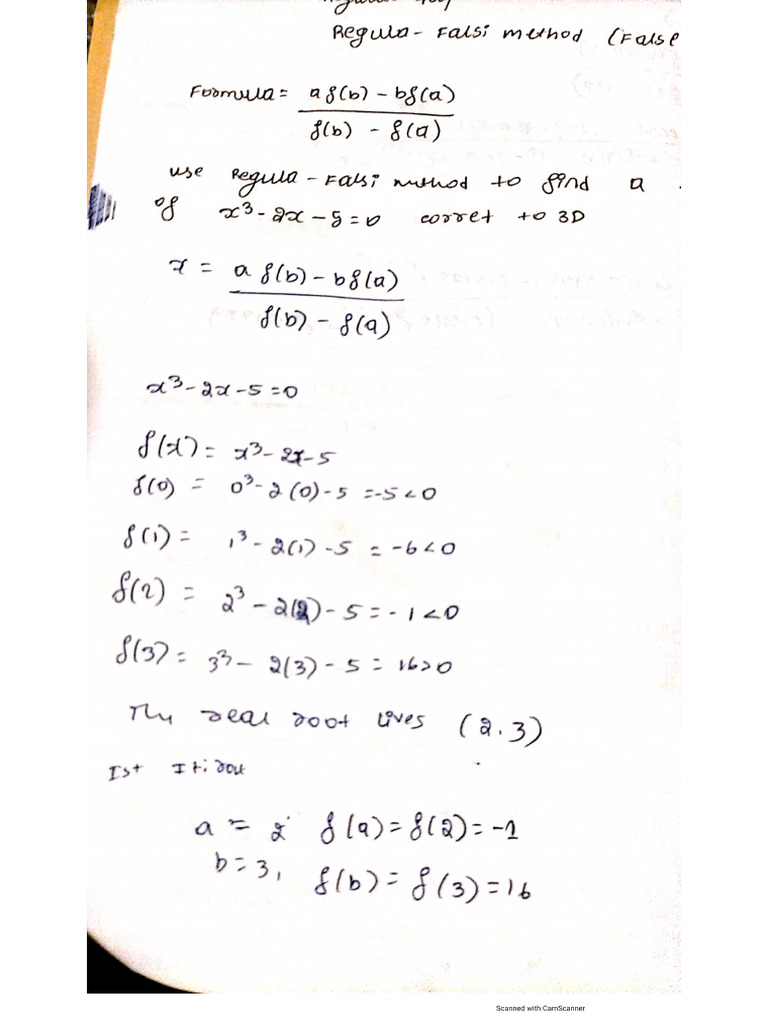 Regula - Falsi method (False
Formula = a f(b) - b f(a)
f(b) - f(a)
use Regula - Falsi method to find a
of x³ - 2x - 5 = 0 corret to 3D
x = a f(b) - b f(a)
f(b) - f(a)
x³ - 2x - 5 = 0
f(x) = x³ - 2x - 5
f(0) = 0³ - 2(0) - 5 = -5 < 0
f(1) = 1³ - 2(1) - 5 = -6 < 0
f(2) = 2³ - 2(2) - 5 = -1 < 0
f(3) = 3³ - 2(3) - 5 = 16 > 0
The real root lives (2.3)
Ist
a = 2 f(a) = f(2) = -1
b = 3, f(b) = f(3) = 16
Scanned with CamScanner